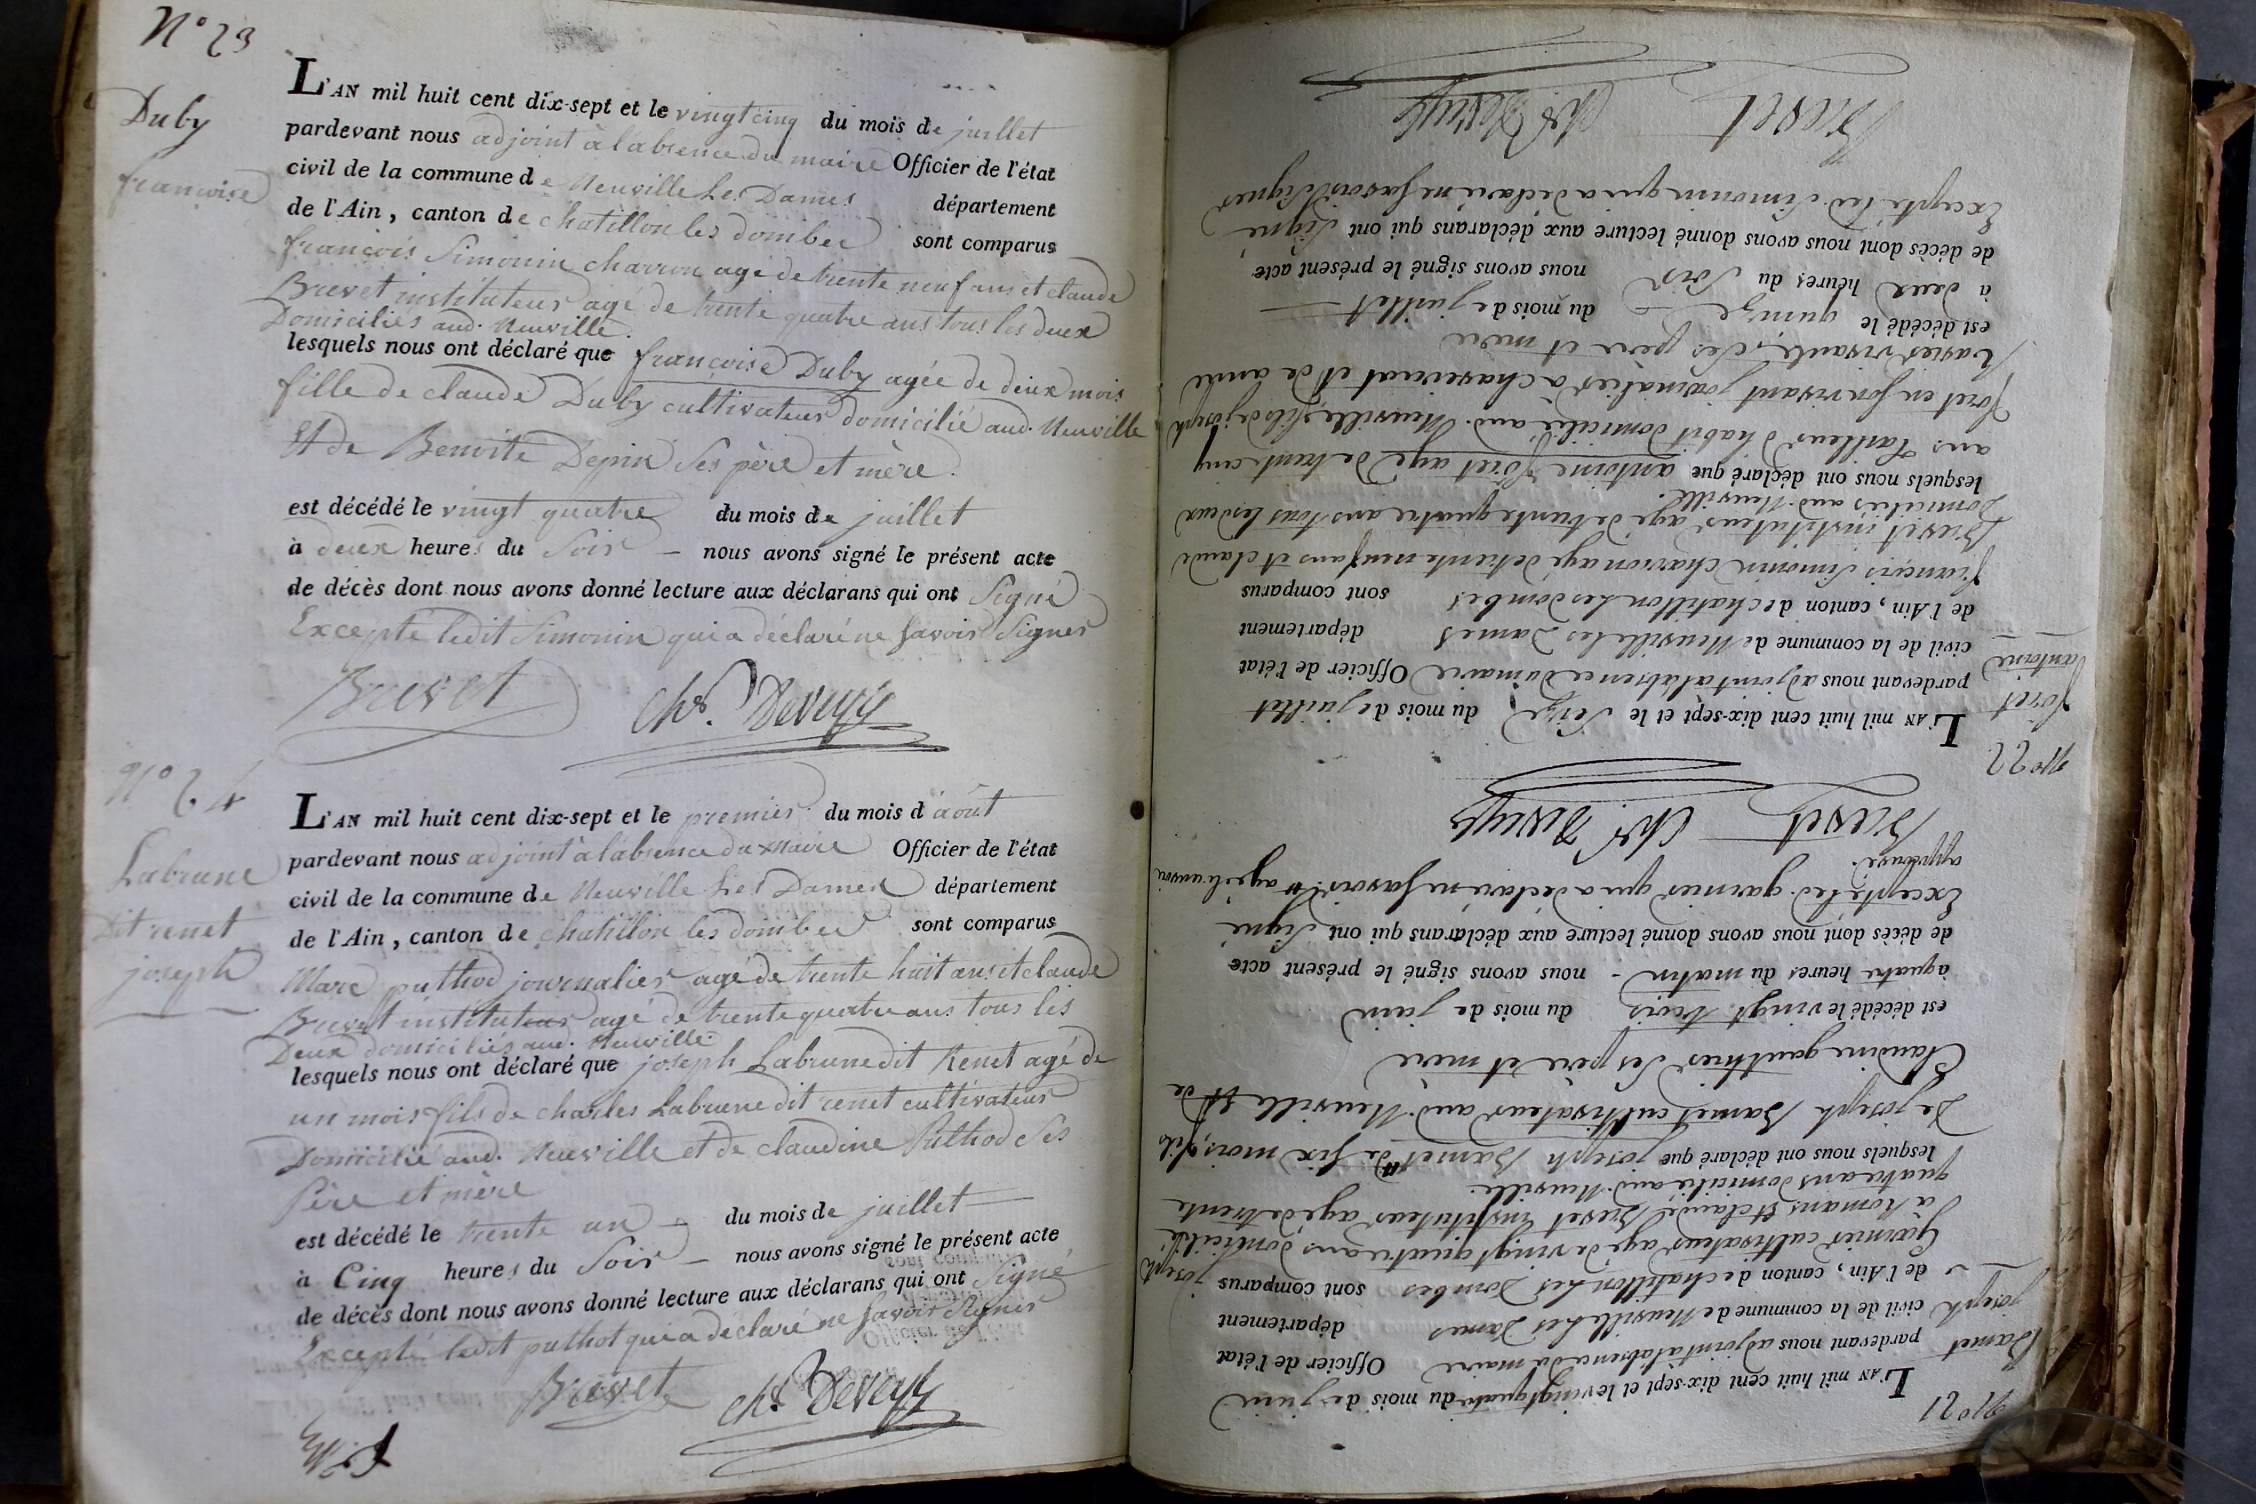 N° 23
Duby
françoise
L'AN mil huit cent dix-sept et le vingt cinq du mois de juillet
pardevant nous adjoint à l'absence du maire Officier de l'état
civil de la commune de Neuville Les Dames département
de l'Ain, canton de chatillon les dombes sont comparus
françois Simonin charron agé de trente neuf ans et claude
Brevet instituteur agé de trente quatre ans tous les deux
Domiciliés aud. Neuville.
lesquels nous ont déclaré que françoise Duby agée de deux mois
fille de claude Duby cultivateur domicilié aud. Neuville
Et de Benoite Depin Ses père et mère.
est décédé le vingt quatre du mois de juillet
à deux heures du Soir — nous avons signé le présent acte
de décès dont nous avons donné lecture aux déclarans qui ont Signé
Excepté ledit Simonin qui a déclaré ne Savoir Signer
Brevet chs. Deveyle
N° 24
Labrune
Dit renet
joseph
L'AN mil huit cent dix-sept et le premier du mois d'août
pardevant nous adjoint à l'absence du maire Officier de l'état
civil de la commune de Neuville Les Dames département
de l'Ain, canton de chatillon les dombes sont comparus
Marc puthod journalier agé de trente huit ans et claude
Brevet instituteur agé de trente quatre ans tous les
Deux domiciliés aud. Neuville.
lesquels nous ont déclaré que joseph Labrune dit Renet agé de
un mois fils de charles Labrune dit renet cultivateur
Domicilié aud. Neuville et de claudine Puthod Ses
Père et mère
est décédé le trente un du mois de juillet
à Cinq heures du Soir — nous avons signé le présent acte
de décès dont nous avons donné lecture aux déclarans qui ont Signé
Excepté ledit puthot qui a déclaré ne Savoir Signer
Brevet chs. Deveyle
N° 21
Bamet
joseph
L'AN mil huit cent dix-sept et le vingt quatre du mois de juin
pardevant nous adjoint à l'absence du maire Officier de l'état
civil de la commune de Neuville Les Dames département
de l'Ain, canton de chatillon Les Dombes sont comparus joseph
Garnier cultivateur agé de vingt quatre ans domicilié
à Romans Et claude Brevet instituteur agé de trente
quatre ans domicilié aud. Neuville.
lesquels nous ont déclaré que joseph Bamet # de Six mois, fils
De joseph Bamet cultivateur aud. Neuville Et de
Claudine gaulthier Ses père et mère
est décédé le vingt trois du mois de juin
à quatre heures du matin - nous avons signé le présent acte
de décès dont nous avons donné lecture aux déclarans qui ont Signé
Excepté led. garnier qui a déclaré ne Savoir. # agé
approuvé.
Brevet chs Deveyle
N° 22
foret
antoine
L'AN mil huit cent dix-sept et le Seize du mois de juillet
pardevant nous adjoint à l'absence du maire Officier de l'état
civil de la commune de Neuville Les Dames département
de l'Ain, canton de chatillon Les Dombes sont comparus
françois Simonin charron agé de trente neuf ans et claude
Brevet instituteur agé de trente quatre ans tous les deux
Domiciliés aud. Neuville.
lesquels nous ont déclaré que antoine foret agé de trente cinq
ans tailleur d'habit domicilié aud. Neuville, fils de joseph
foret en Son vivant journalier à et de anne
vivante, Ses père et mère
est décédé le quinze du mois de juillet
à deux heures du Soir nous avons signé le présent acte
de décès dont nous avons donné lecture aux déclarans qui ont Signé
Excepté led. Simonin qui a déclaré ne Savoir Signer
Brevet chs Deveyle